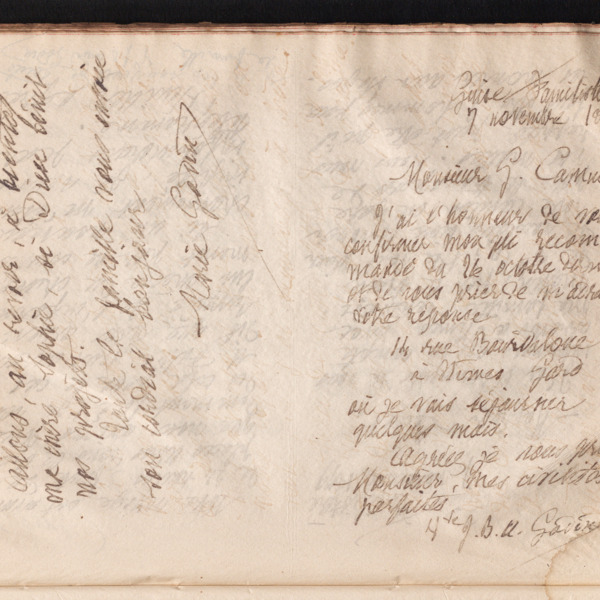 causons, au revoir, à bientôt
ma chère Sophie si Dieu bénit
nos projets.
Toute la famille vous envoie
son cordial bonjour
Marie Godin
Guise Familist
7 novembre 18
Monsieur G. Camu
J'ai l'honneur de vo
confirmer mon pli recom
mandé du 26 octobre
et de vous prier de m'adre
votre réponse
14 rue Bourdaloue
à Nîmes Gard
où je vais séjourner
quelques mois.
Agréez je vous pr
Monsieur, mes civilités
parfaites
Vve J.B.A. Godin